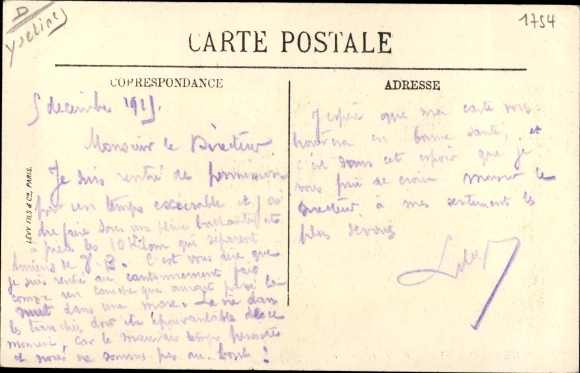 D
Yvelines
1754
CARTE POSTALE
CORRESPONDANCE
ADRESSE
LÉVY FILS & Cie, PARIS.
5 decembre 1915.
Monsieur le Directeur
Je suis rentré de permission
par un temps execrable et j'ai
du faire sous une pluie battante
à pied les 10 Kilom qui séparent
Amiens de
C'est vous dire que
je suis rentré au cantonnement fait
comme un caniche qui aurait passé la
nuit dans une mare. La vie dans
les tranchées doit etre épouvantable en ce
moment, car le mauvais temps persiste
et nous ne sommes pas au bout !
J'espère que ma carte vous
trouvera en bonne santé, et
c'est dans cet espoir que je
vous prie de croire Monsieur le
Directeur à mes sentiments les
plus devoués